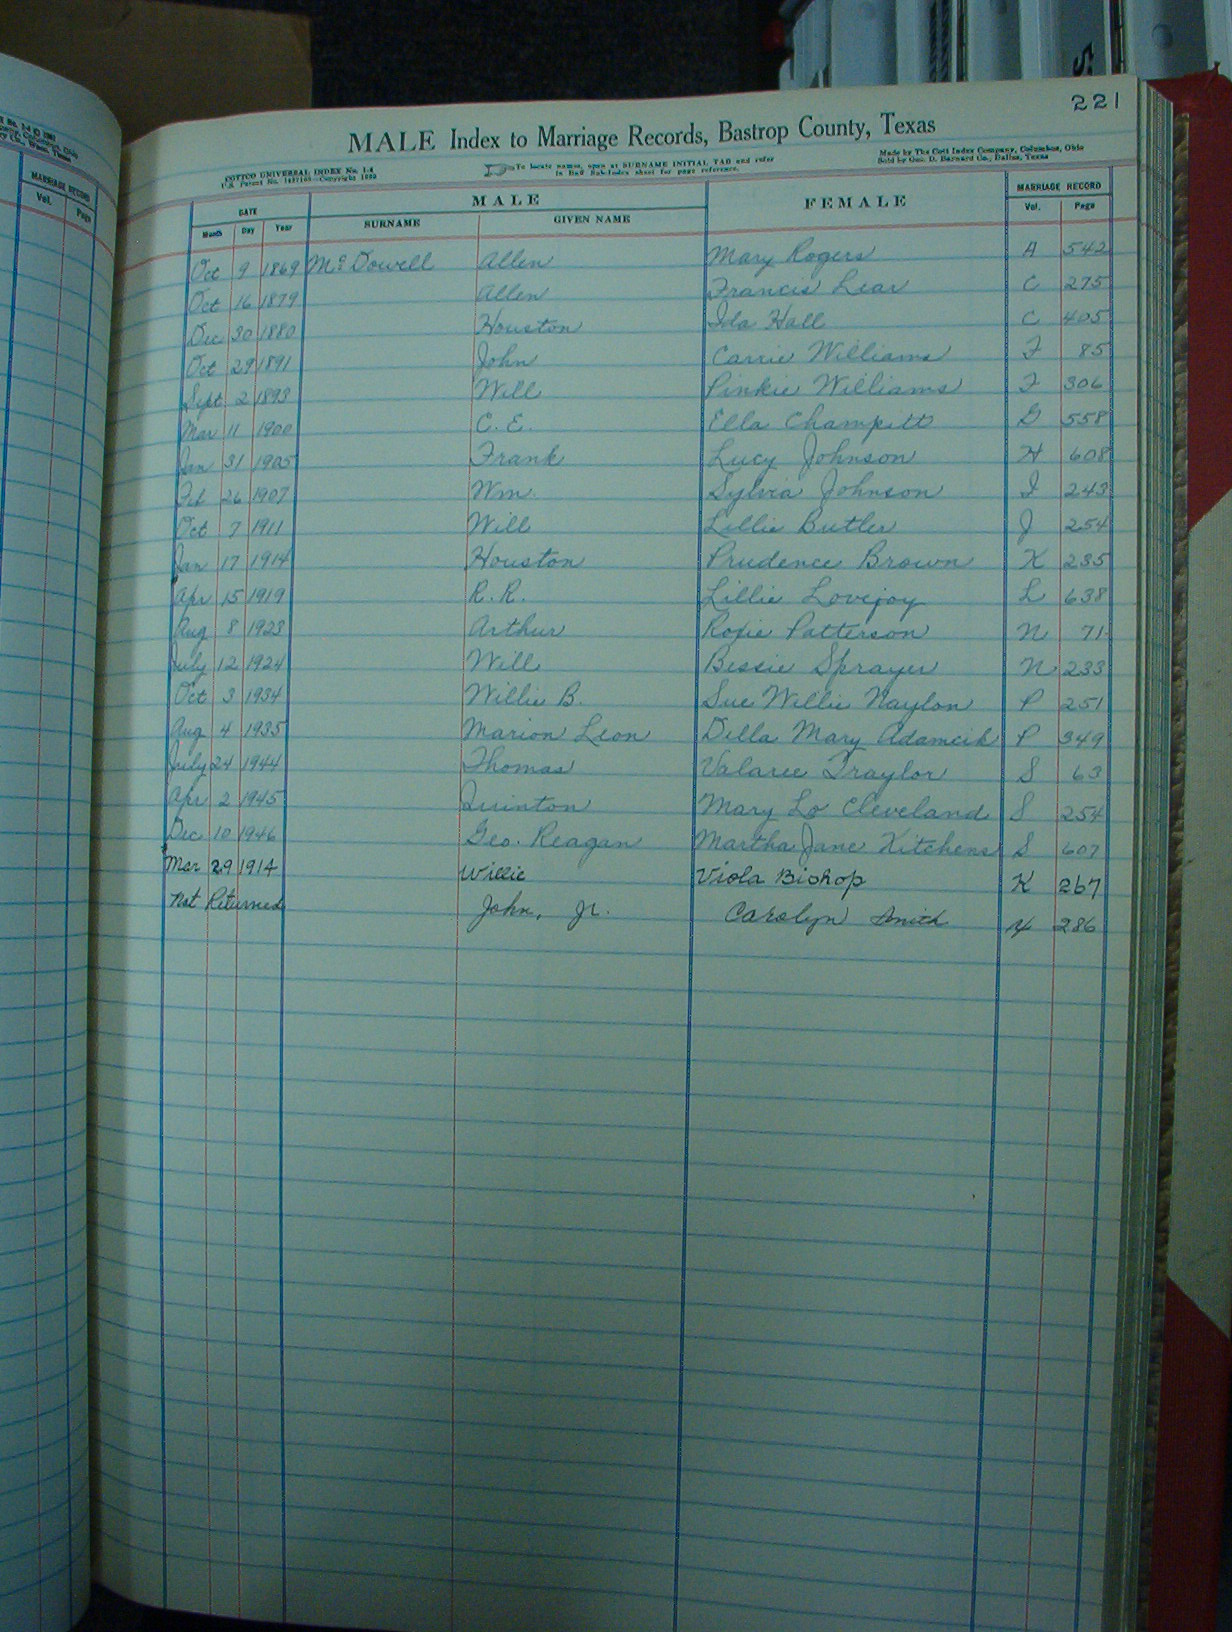 221
MALE Index to Marriage Records, Bastrop County, Texas
COTTCO UNIVERSAL INDEX No. 1-4
To locate names, open at SURNAME INITIAL TAB and refer
in Buff Sub-Index sheet for page reference.
Made by The Cott Index Company, Columbus, Ohio
Sold by Geo. D. Barnard Co., Dallas, Texas
MARRIAGE RECORD
Vol. Page
DATE MALE FEMALE MARRIAGE RECORD
Month Day Year SURNAME GIVEN NAME Vol. Page
Oct 9 1869 McDowell Allen Mary Rogers A 542
Oct 16 1879 Allen Francis Lear C 275
Dec 30 1880 Houston Ida Hall C 405
Oct 29 1891 John Carrie Williams F 85
Sept 2 1893 Will Pinkie Williams F 306
Mar 11 1900 C. E. Ella Champitt G 558
Jan 31 1905 Frank Lucy Johnson H 608
Feb 26 1907 Wm. Sylvia Johnson I 243
Oct 7 1911 Will Lillie Butler J 254
Jan 17 1914 Houston Prudence Brown K 235
Apr 15 1919 R. R. Lillie Lovejoy L 638
Aug 8 1923 Arthur Patterson N 71
July 12 1924 Will Bessie Sprayer N 233
Oct 3 1934 Willie B. Sue Willie Naylon P 251
Aug 4 1935 Marion Leon Della Mary Adamcik P 349
July 24 1944 Thomas Valaree Traylor S 63
Apr 2 1945 Quinton Mary Lo Cleveland S 254
Dec 10 1946 Geo. Reagan Martha Jane Kitchens S 607
Mar 29 1914 Willie Viola Bishop K 267
Not Returned John, Jr. Carolyn Smith 286